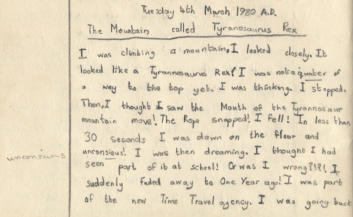 Tuesday 4th March 1980 A.D.
The Mountain called Tyranosaurus Rex
I was climbing a mountain. I looked closely. It
looked like a Tyrannosaurus Rex! I was not a quarter of
a way to the top yet. I was thinking. I stopped.
Then, I thought I saw the Mouth of the Tyrannosaur
mountain move! The Rope snapped! I fell! In less than
30 seconds I was down on the floor and
unconsious! I was then dreaming. I thought I had
unconsious
seen part of it at school! Or was I wrong?!?! I
suddenly faded away to One Year ago! I was part
of the new Time Travel agency. I was going back